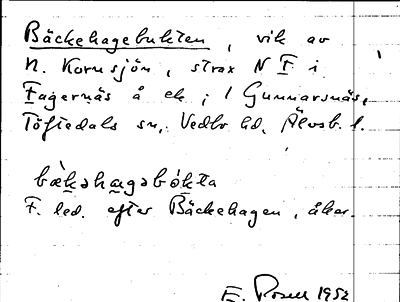 Bäckehagebukten, vik av
N. Kornsjön, strax N F i
Fagernäs å ek; 1 Gunnarsnäs,
Töftedals sn, Vedbo hd, Älvsb. l.
bæ̀kəhagəbókta
F. led. efter Bäckehagen, åker.
E. Rosell 1952